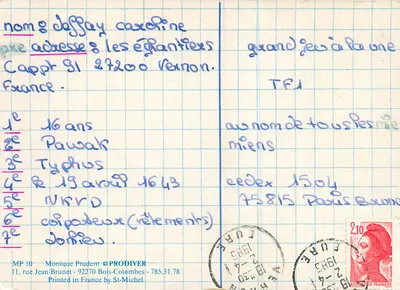 nom: daffay caroline
adresse: les églantiers
Cappt 91 27200 Vernon.
France.
1e 16 ans
2e Pawak
3e Typhus
4e le 19 avril 1643
5e NKVD
6e (vêtements)
7e
grand jeu à la une
TF1
au nom de tous les miens
cedex 1504
75815 Paris Brune
2,10
VERNON
EURE
2-4
1985
MP 10 Monique Prudent © PRODIVER
11, rue Jean Brunet - 92270 Bois-Colombes - 785.31.78
Printed in France by St-Michel